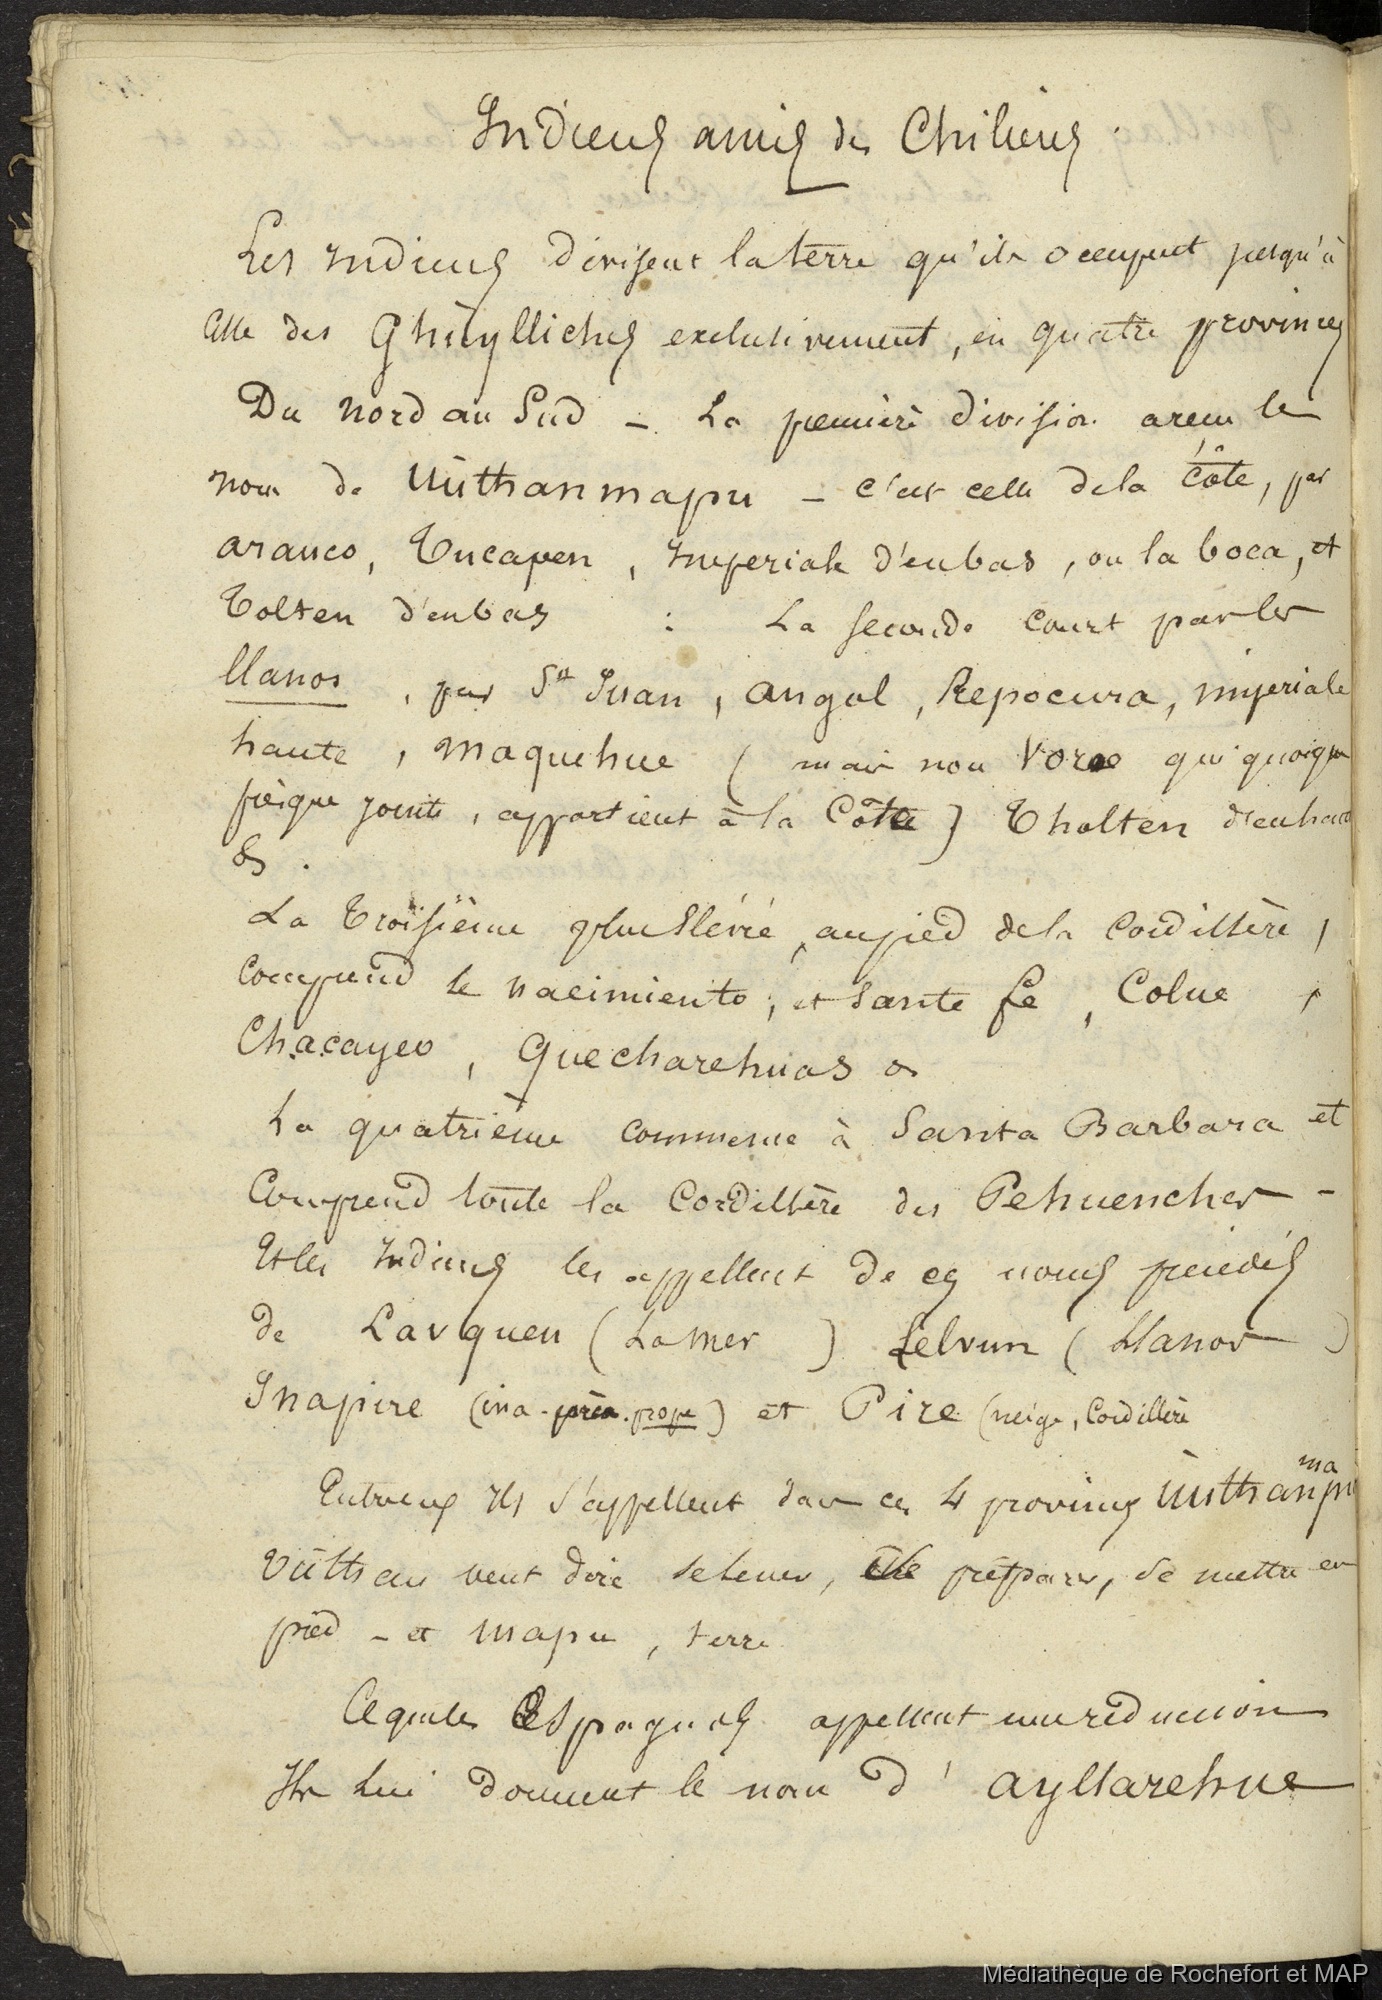 Indiens amis des Chiliens.
Les Indiens divisent la terre qu'ils occupent jusqu'à
celle des Ghùylliches exclusivement, en quatre provinces
Du nord au Sud - La première division a reçu le
nom de Uùthanmapu - c'est celle de la Côte, par
arauco, Tucapen, Imperiale d'enbas, ou la boca, et
Tolten d'enbas : La seconde court par les
llanos, par St Juan, angol, Repocura, imperiale
haute, maquehue (mais non Voroe qui quoique
presque jointe, appartient à la Côte) Tholten d'enhaut
&.
La Troisième plus Elévée, au pied de la Cordillère,
comprend le nacimiento, et sante fe, Colue,
Chacayco, Quecharehuas &
La quatrième commence à Santa Barbara et
Comprend toute la Cordillère des Pehuenches -
Et les Indiens les appellent de ces noms
de Lavquen (La Mer) Lelvun (Llanos)
Inapire (ina - près - prope) et Pire (neige, Cordillère
Entreux Ils s'appellent dans ces 4 provinces Uùthanmapu
Vùthan veut dire se lever, préparer, se mettre en
pied - et mapu, terre
Ce que les Espagnols appellent une reduccion
Ils lui donnent le nom d'ayllarehue
Médiathèque de Rochefort et MAP